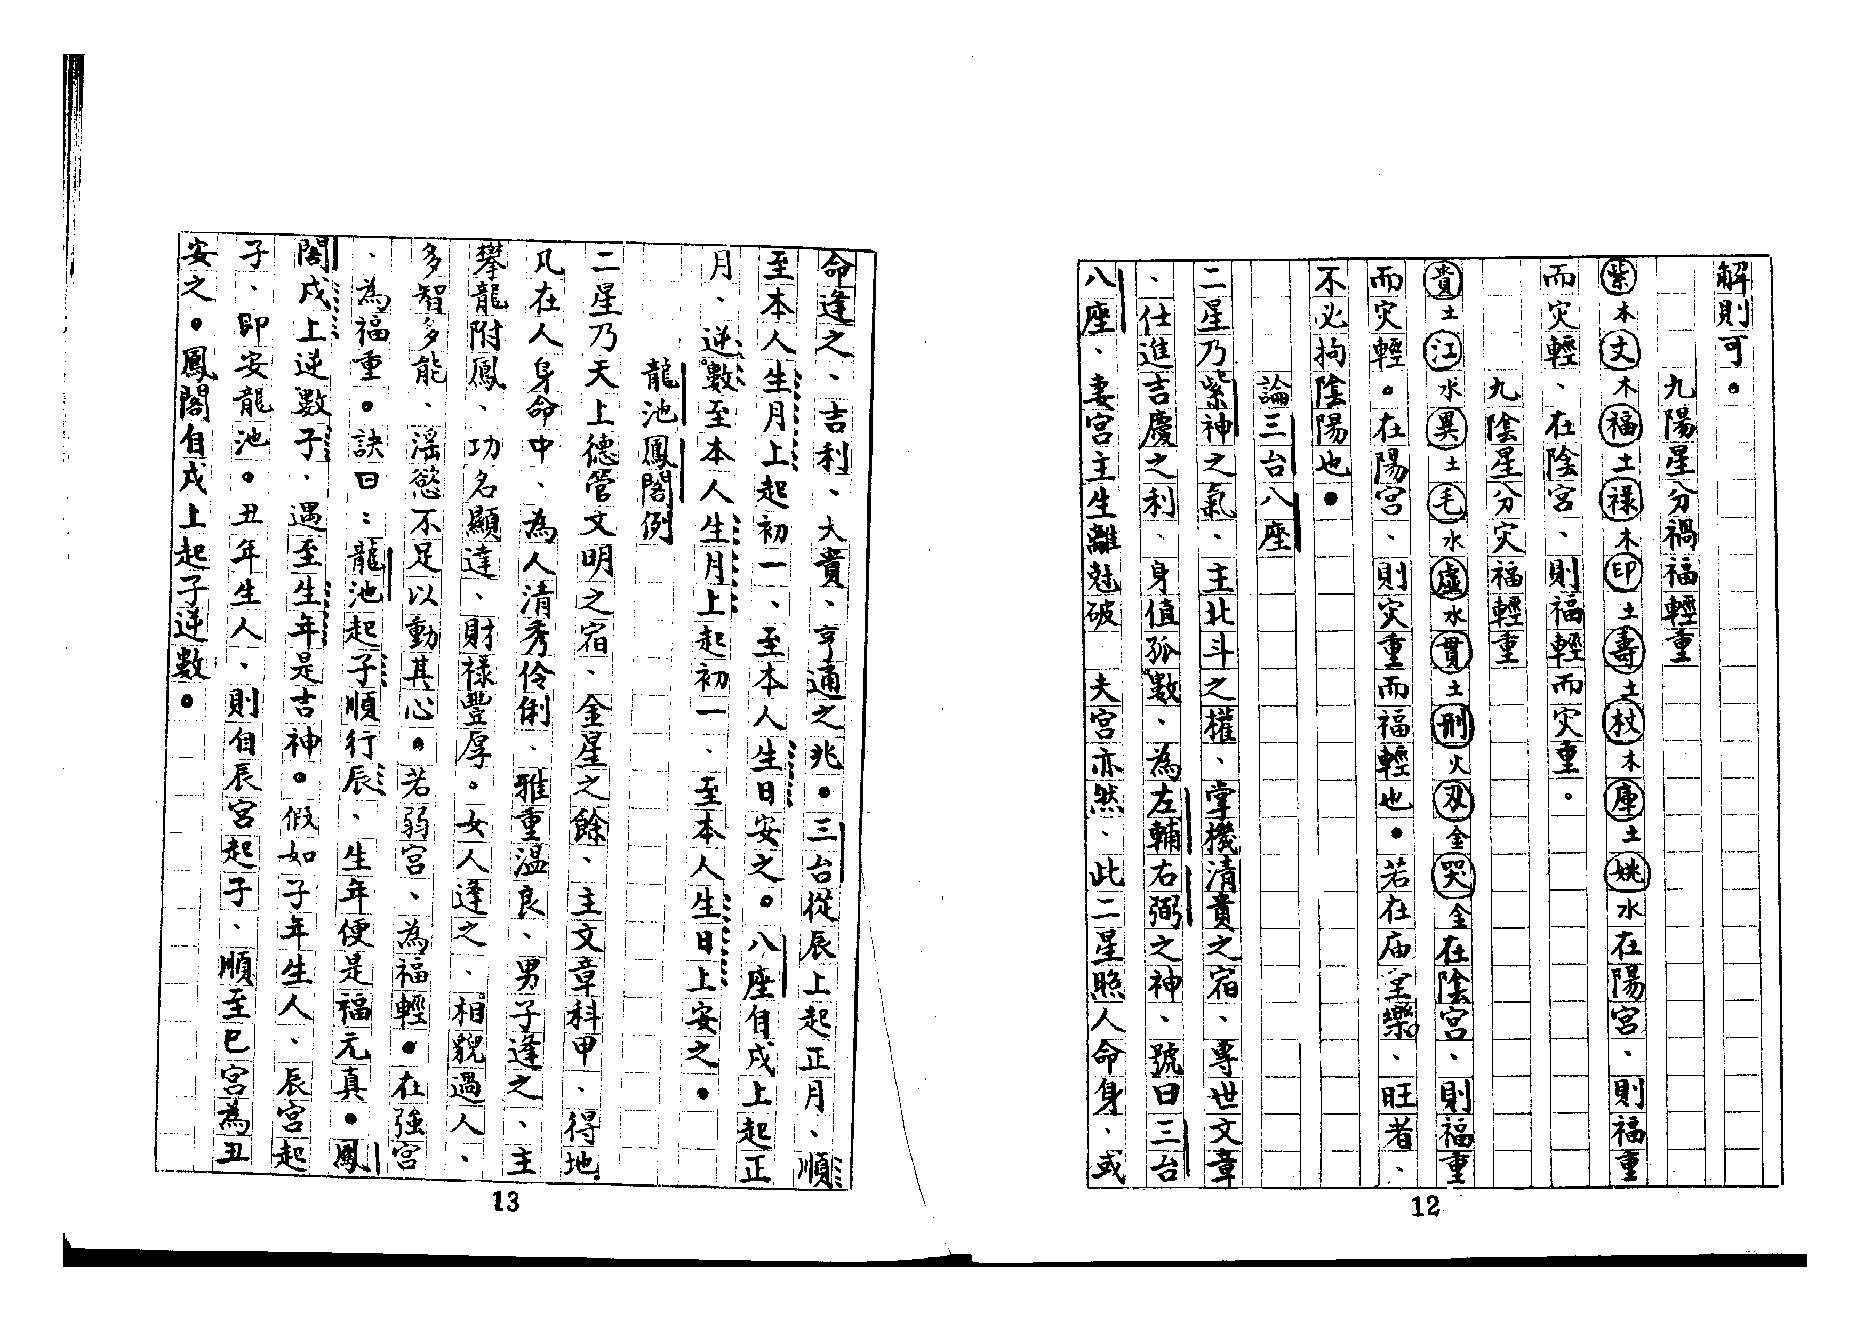 解則可。
九陽星分禍福輕重
紫木文木福土祿木印土壽土杖木庫土姚水在陽宮、則福重
而灾輕、在陰宮、則福輕而灾重。
九陰星分灾福輕重
貴土江水異土毛水虛水貫土刑火刃金哭金在陰宮、則福重
而灾輕。在陽宮、則灾重而福輕也。若在庙樂、旺者、
不必拘陰陽也。
論三台八座
二星乃紫神之氣、主北斗之權、掌機清貴之宿、專世文章
、仕進吉慶之利、身值孤數、為左輔右弼之神、號曰三台
八座、妻宮主生離尅破 夫宮亦然、此二星照人命身、或
12
命逢之、吉利、大貴、亨通之兆。三台從辰上起正月、順
至本人生月上起初一、至本人生日安之。八座自戌上起正
月、逆數至本人生月上起初一、至本人生日上安之。
龍池鳳閣例
二星乃天上德管文明之宿、金星之餘、主文章科甲、得地
凡在人身命中、為人清秀伶俐、雅重溫良、男子逢之、主
攀龍附鳳、功名顯達、財祿豐厚。女人逢之、相貌過人、
多智多能、淫慾不足以動其心。若弱宮、為福輕。在強宮
、為福重。訣曰：龍池起子順行辰、生年便是福元真。鳳
閣戌上逆數子、遇至生年是吉神。假如子年生人、辰宮起
子、即安龍池。丑年生人、則自辰宮起子、順至巳宮為丑
安之。鳳閣自戌上起子逆數。
13